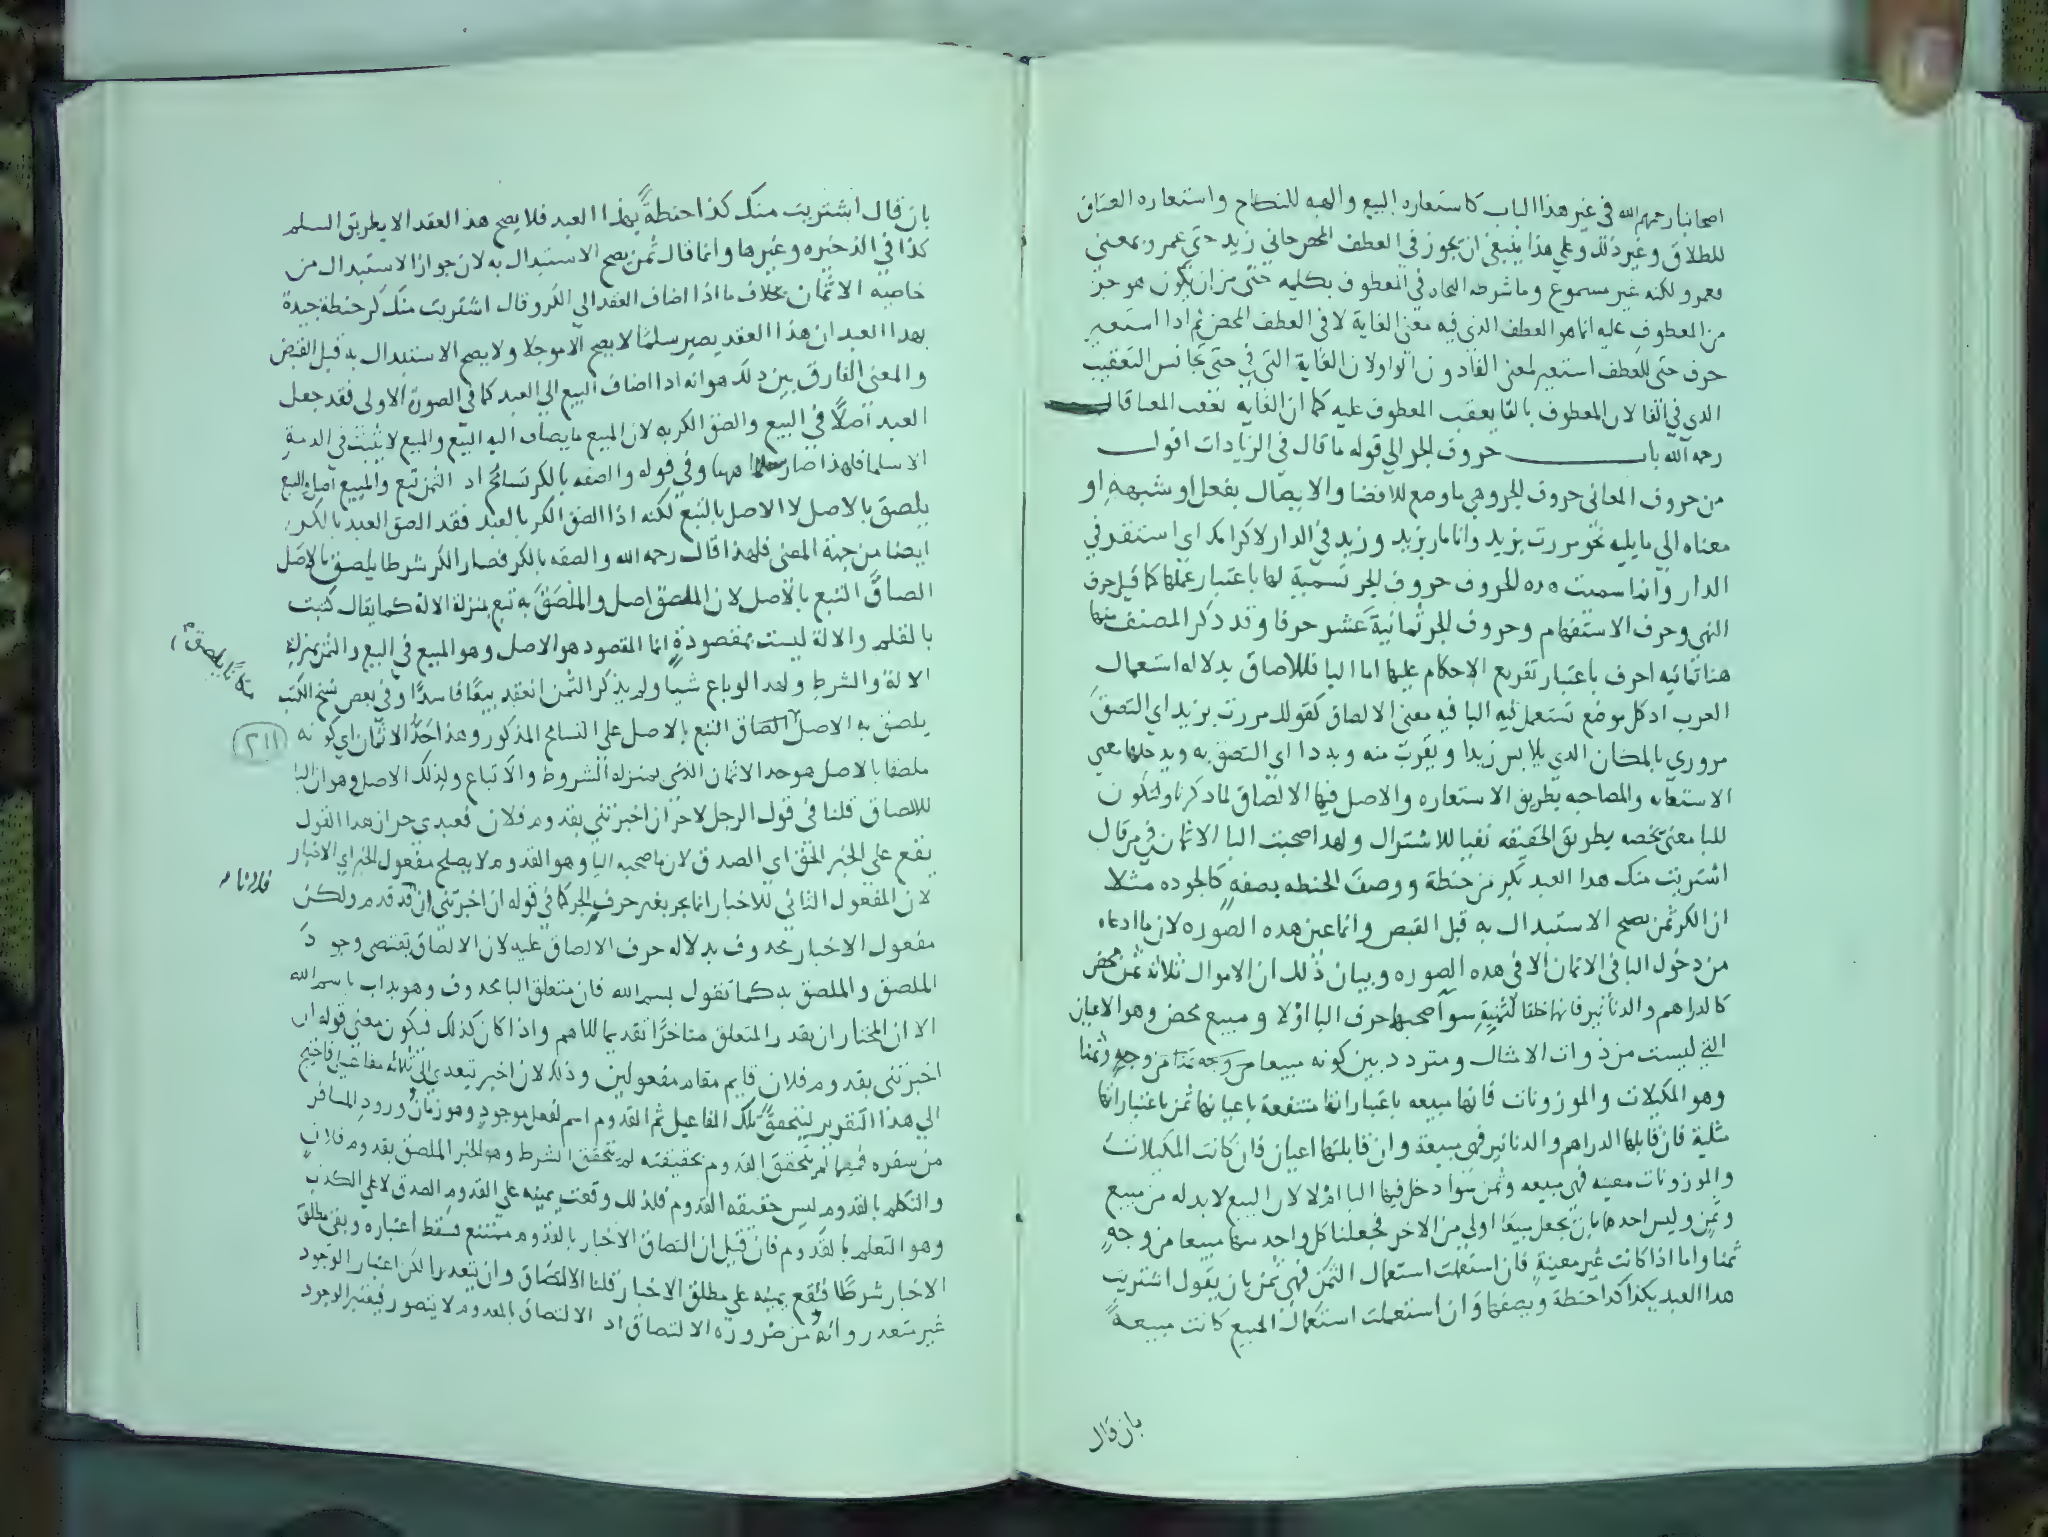 اصحابنا رحمهم الله في غير هذا الباب كاستعاره البيع والهبه للنكاح واستعاره العتاق
للطلاق وغير ذلك وعلي هذا ينبغي ان يجوز في العطف المحض جاني زيد حتي عمرو بمعني
فعمرو لكنه غير مسموع وما شرطه النحاه في المعطوف بكلمه حتي من ان يكون هو جز
من المعطوف عليه انما هو العطف الذي فيه معني الغاية لا في العطف المحض ثم اذا استعير
حرف حتي للعطف استعير لمعني الفا دون الواو لان الغاية التي في حتي تجانس التعقيب
الذي في الفا لان المعطوف بالفا يعقب المعطوف عليه كما ان الغايه تعقب المغيا قال
رحمه الله باب حروف الجر الي قوله ما قال في الزيادات اقول
من حروف المعاني حروف الجر وهي ما وضع للافضا والايصال بفعل او شبهه او
معناه الي ما يليه نحو مررت بزيد وانا مار بزيد وزيد في الدار لاكرامك اي استقر في
الدار وانما سميت هده الحروف حروف الجر تسمية لها باعتبار عملها كما قيل حرف
النهي وحرف الاستفهام وحروف الجر ثمانية عشر حرفا وقد ذكر المصنف منها
هنا ثمانيه احرف باعتبار تفريع الاحكام عليها اما البا فللالصاق بدلاله استعمال
العرب اد كل موضع تستعمل فيه البا فيه معني الالصاق كقولك مررت بزيد اي التصق
مروري بالمكان الدي يلابس زيدا ويقرب منه وبه دا اي التصق به ويدخلها معني
الاستعانه والمصاحبه بطريق الاستعاره والاصل فيها الالصاق لما ذكرنا وليكون
للبا معني تخصه بطريق الحقيقه نفيا للاشتراك ولهدا صحبت البا الاثمان في من قال
اشتريت منك هدا العبد بكر من حنطة ووصف الحنطه بصفهٍ كالجوده مثلا
ان الكر ثمن يصح الاستبدال به قبل القبض وانما عين هده الصوره لان ما ادعاه
من دخول البا في الاثمان الا في هده الصوره وبيان ذلك ان الاموال ثلاثه ثمن محض
كالدراهم والدنانير فانها خلقا لثمنيةٍ سوا صحبها حرف البا اولا ومبيع محض وهو الاعيان
التي ليست من ذوات الامثال ومتردد بين كونه مبيعا من وجه ثمنا من وجهٍ وثمنا
وهو المكيلات والموزونات فانها مبيعه باعتبار انها منتفعة باعيانها ثمن باعتبار انها
مثلية فان قابلها الدراهم والدنانير فهي مبيعة وان قابلتها اعيان فان كانت المكيلات
والموزونات معينه فهي مبيعه وثمن سوا دخل فيها البا اولا لان البيع لابد له من مبيع
وثمنٍ وليس احدهما بان يجعل مبيعا اولي من الاخر فجعلنا كل واحد منها مبيعا من وجهٍ
ثمنا واما اذا كانت غير معينةٍ فان استعملت استعمال الثمن فهي ثمن بان يقول اشتريت
هدا العبد بكذا كدا حنطة ويصفها وان استعملت استعمال المبيع كانت مبيعةً
بان قال
بان قال اشتريت منك كذا حنطةً بهذا العبد فلا يصح هذا العقد الا بطريق السلم
كذا في الذخيره وغيرها وانما قال ثمن يصح الاستبدال به لان جواز الاستبدال من
خاصيه الاثمان بخلاف ما اذا اضاف العقد الي الكر وقال اشتريت منك كر حنطة جيدة
بهدا العبد ان هدا العقد يصير سلما لا يصح الا موجلا ولا يصح الاستبدال به قبل القبض
والمعني الفارق بين دلك هو انه ادا اضاف البيع الي العبد كما في الصورة الاولى فقد جعل
العبد اصلاً في البيع والصق الكر به لان المبيع ما يضاف اليه البيع والمبيع لا يثبت في الدمة
الا سلما فلهذا صار سلما ههنا وفي قوله والصقه بالكر تسامح اد الثمن تبع والمبيع اصل والتبع
يلصق بالاصل لا الاصل بالتبع لكنه اذا الصق الكر بالعبد فقد الصق العبد بالكر
ايضا من جهة المعني فلهذا قال رحمه الله والصقه بالكر فصار الكر شرطا يلصق بالاصل
الصاق التبع بالاصل لان الملصق اصل والملصق به تبع بمنزلة الالة كما يقال كتبت
بالقلم والالة ليست بمقصودةٍ انما المقصود هو الاصل وهو المبيع في البيع والثمن بمنزلة
الالة والشرط ولهدا لو باع شيا ولم يذكر الثمن انعقد بيعًا فاسدًا وفي بعض نسخ الكتب
يلصق به الاصل الصاق التبع بالاصل علي التسامح المذكور وهذا حد الاثمان اي كونه
ملصقا بالاصل هو حد الاثمان التي بمنزله الشروط والاتباع ولذلك الاصل وهو ان البا
للالصاق قلنا في قول الرجل لاخر ان اخبرتني بقدوم فلان فعبدي حر ان هدا القول
يقع علي الخبر الحق اي الصدق لان ما صحبه البا وهو القدوم لا يصلح مفعول الخبر اي الاخبار
لان المفعول الثاني للاخبار انما يجر بغير حرف الجر كما في قوله ان اخبرتني ان قد قدم ولكن
مفعول الاخبار محدوف بدلاله حرف الالصاق عليه لان الالصاق يقتضي وجود
الملصق والملصق به كما تقول بسم الله فان متعلق البا محدوف وهو بدات باسم الله
الا ان المختار ان يقدر المتعلق متاخرًا تقديما للاهم واذا كان كذلك فيكون معني قوله ان
اخبرتني بقدوم فلان قايم مقام مفعولين وذلك لان اخبر تتعدي الي ثلاثه مفاعيل فاحتيج
الي هذا التقرير ليتحقق تلك المفاعيل ثم القدوم اسم لفعل موجودٍ وهو زمان ورود المسافر
من سفره فمهما لم يتحقق القدوم بحقيقته لم يتحقق الشرط وهو الخبر الملصق بقدوم فلانٍ
والتكلم بالقدوم ليس حقيقه القدوم فلذلك وقعت يمينه علي القدوم الصدق لا علي الكذب
وهو التعلم بالقدوم فان قيل ان التصاق الاخبار بالقدوم ممتنع فسقط اعتباره وبقي مطلق
الاخبار شرطًا فتقع يمينه علي مطلق الاخبار قلنا الالتصاق وان يتعدر لكن اعتبار الوجود
غير متعدر وانه من ضرورة الالتصاق اد الالتصاق بالمعدوم لا يتصور فيعتبر الوجود
مكانا يلصق
٢١١